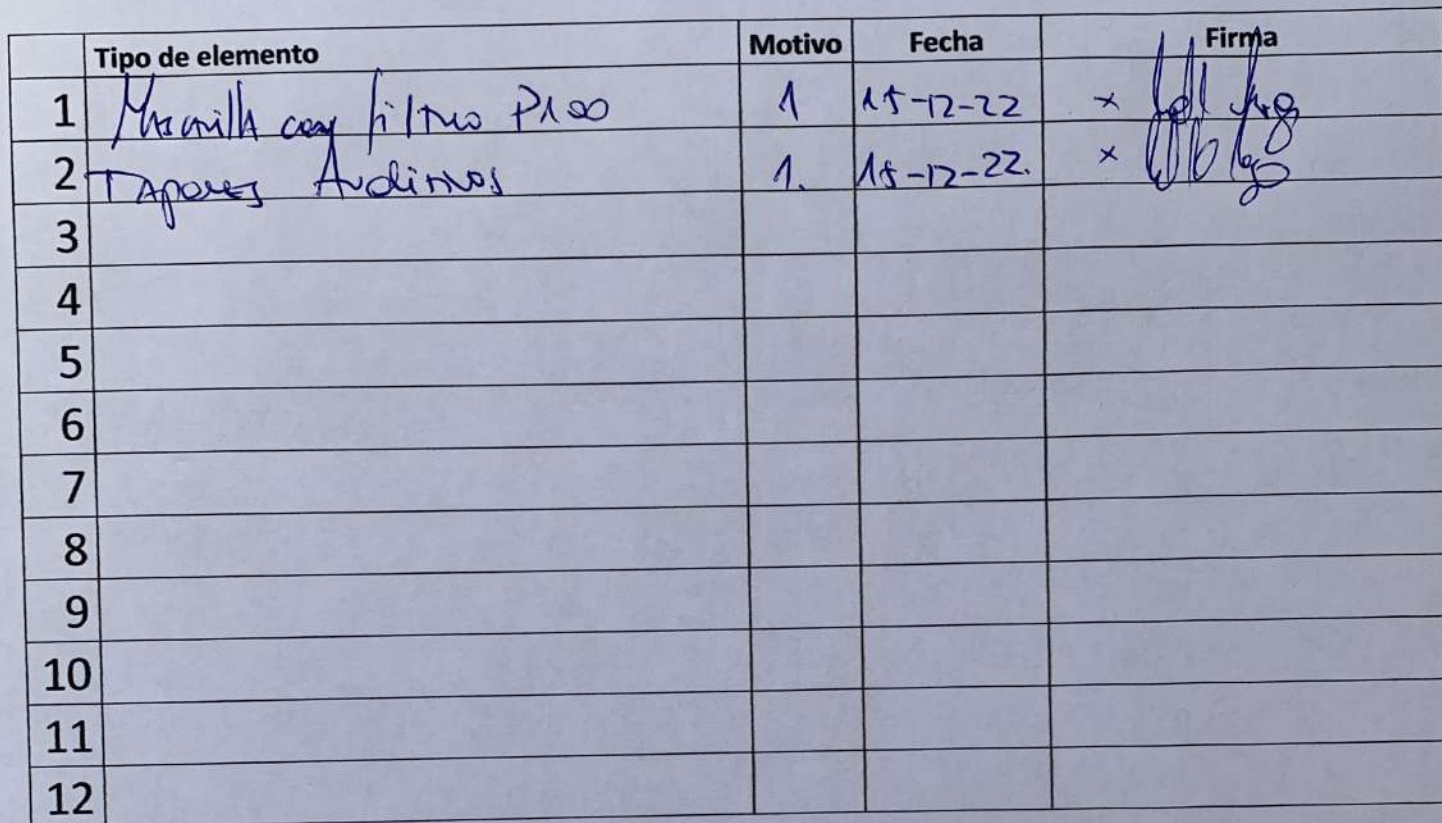 Tipo de elemento Motivo Fecha Firma
1 Mascarilla con filtro P100 1 15-12-22 x
2 Tapones Auditivos 1. 15-12-22. x
3
4
5
6
7
8
9
10
11
12